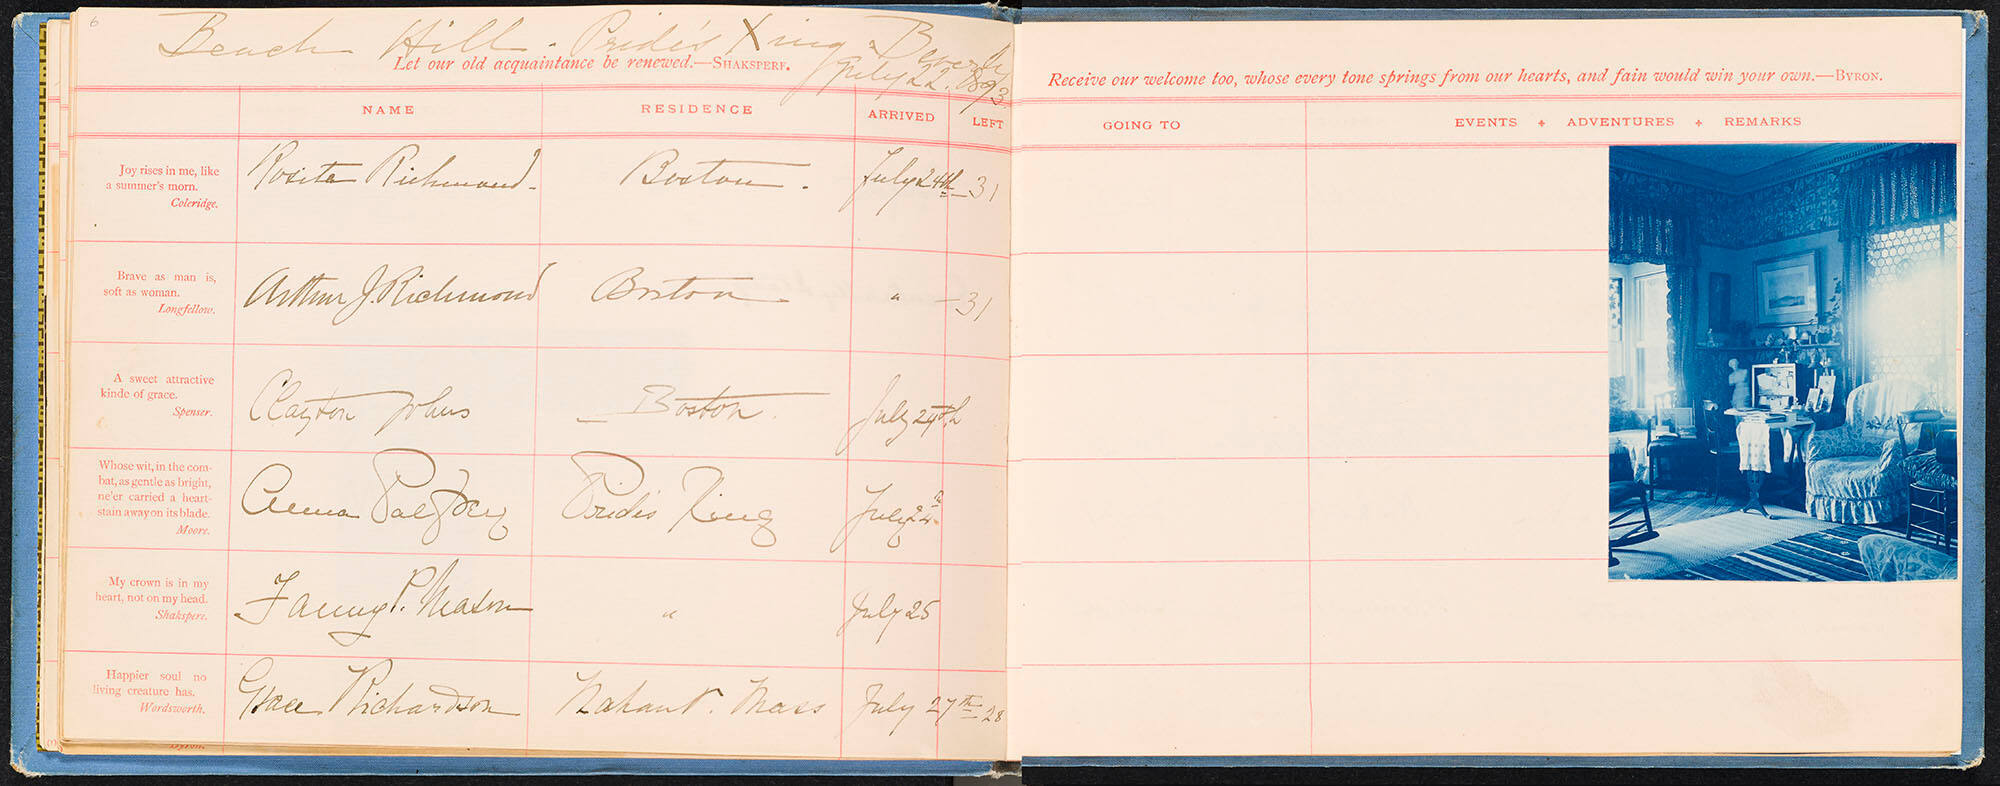 6
Beach Hill - Pride's Xing - Beverly
July 22. 1893
Let our old acquaintance be renewed.—SHAKSPERE.
NAME RESIDENCE ARRIVED LEFT
Joy rises in me, like
a summer's morn.
Coleridge.
Rosita Richmond- Boston. July 24th — 31
Brave as man is,
soft as woman.
Longfellow.
Arthur J. Richmond Boston " — 31
A sweet attractive
kinde of grace.
Spenser.
Clayton Johns Boston. July 24th
Whose wit, in the com-
bat, as gentle as bright,
ne'er carried a heart-
stain away on its blade.
Moore.
Anna Palfrey Prides Xing July 24th
My crown is in my
heart, not on my head.
Shakspere.
Fanny P. Mason " July 25
Happier soul no
living creature has.
Wordsworth.
Grace Richardson Nahant. Mass July 27th 28
Byron.
Receive our welcome too, whose every tone springs from our hearts, and fain would win your own.—BYRON.
GOING TO EVENTS + ADVENTURES + REMARKS